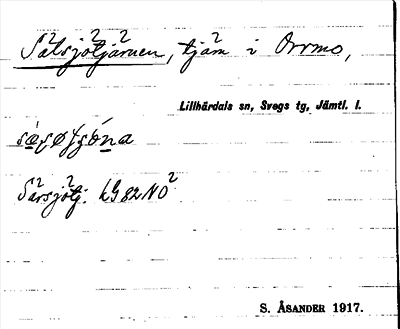 Sätsjötjärnen, tjärn i Orrmo,
Lillhärdals sn, Svegs tg, Jämtl. l.
Särsjötj. kG 82 NO²
S. ÅSANDER 1917.